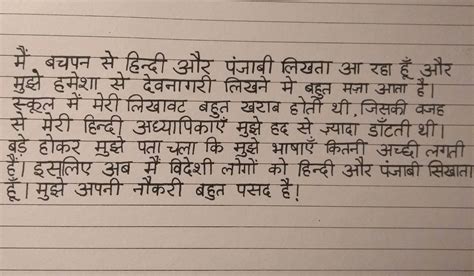 मैं बचपन से हिन्दी और पंजाबी लिखता आ रहा हूँ और
मुझे हमेशा से देवनागरी लिखने में बहुत मज़ा आता है।
स्कूल में मेरी लिखावट बहुत खराब होती थी, जिसकी वजह
से मेरी हिन्दी अध्यापिकाएँ मुझे हद से ज़्यादा डाँटती थी।
बड़े होकर मुझे पता चला कि मुझे भाषाएँ कितनी अच्छी लगती
हैं। इसलिए अब मैं विदेशी लोगों को हिन्दी और पंजाबी सिखाता
हूँ। मुझे अपनी नौकरी बहुत पसंद है!